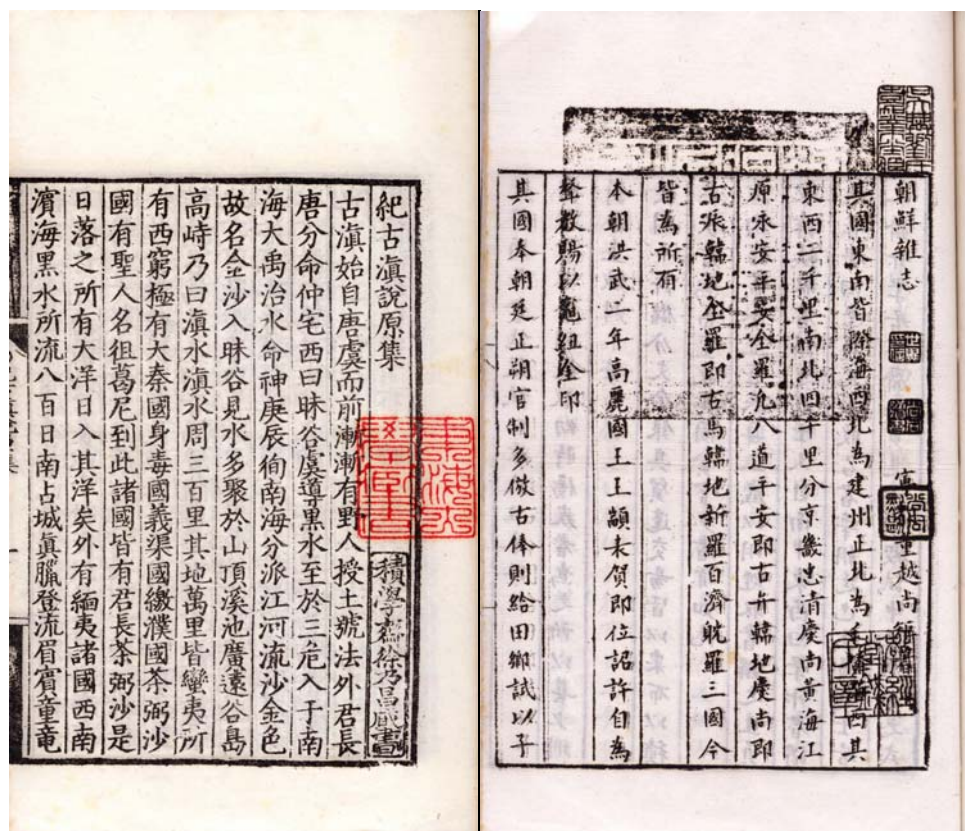 朝鮮雜志 董越尚
其國東南皆際海西北為建州正北為毛西其
東西二千里南北四千里分京畿忠清慶尚黃海江
原永安平安全羅凡八道平安即古弁韓地慶尚即
古辰韓地全羅即古馬韓地新羅百濟躭羅三國今
皆為所有
本朝洪武二年高麗國王王顓表賀即位詔許自為
聲教賜以龜紐金印
其國奉朝廷正朔官制多倣古俸則給田鄉試以子
紀古滇說原集
積學齋徐乃昌藏書
古滇始自唐虞而前漸漸有野人授土號法外君長
唐分命仲宅西曰昧谷虞導黑水至於三危入于南
海大禹治水命神庚辰徇南海分派江河流沙金色
故名金沙入昧谷見水多聚於山頂溪池廣遠谷島
高峙乃曰滇水滇水周三百里其地萬里皆蠻夷所
有西窮極有大秦國身毒國義渠國繳濮國荼弼沙
國有聖人名徂葛尼到此諸國皆有君長荼弼沙是
日落之所有大洋日入其洋矣外有緬夷諸國西南
濱海黑水所流八百日南占城眞臘登流眉賓童竜